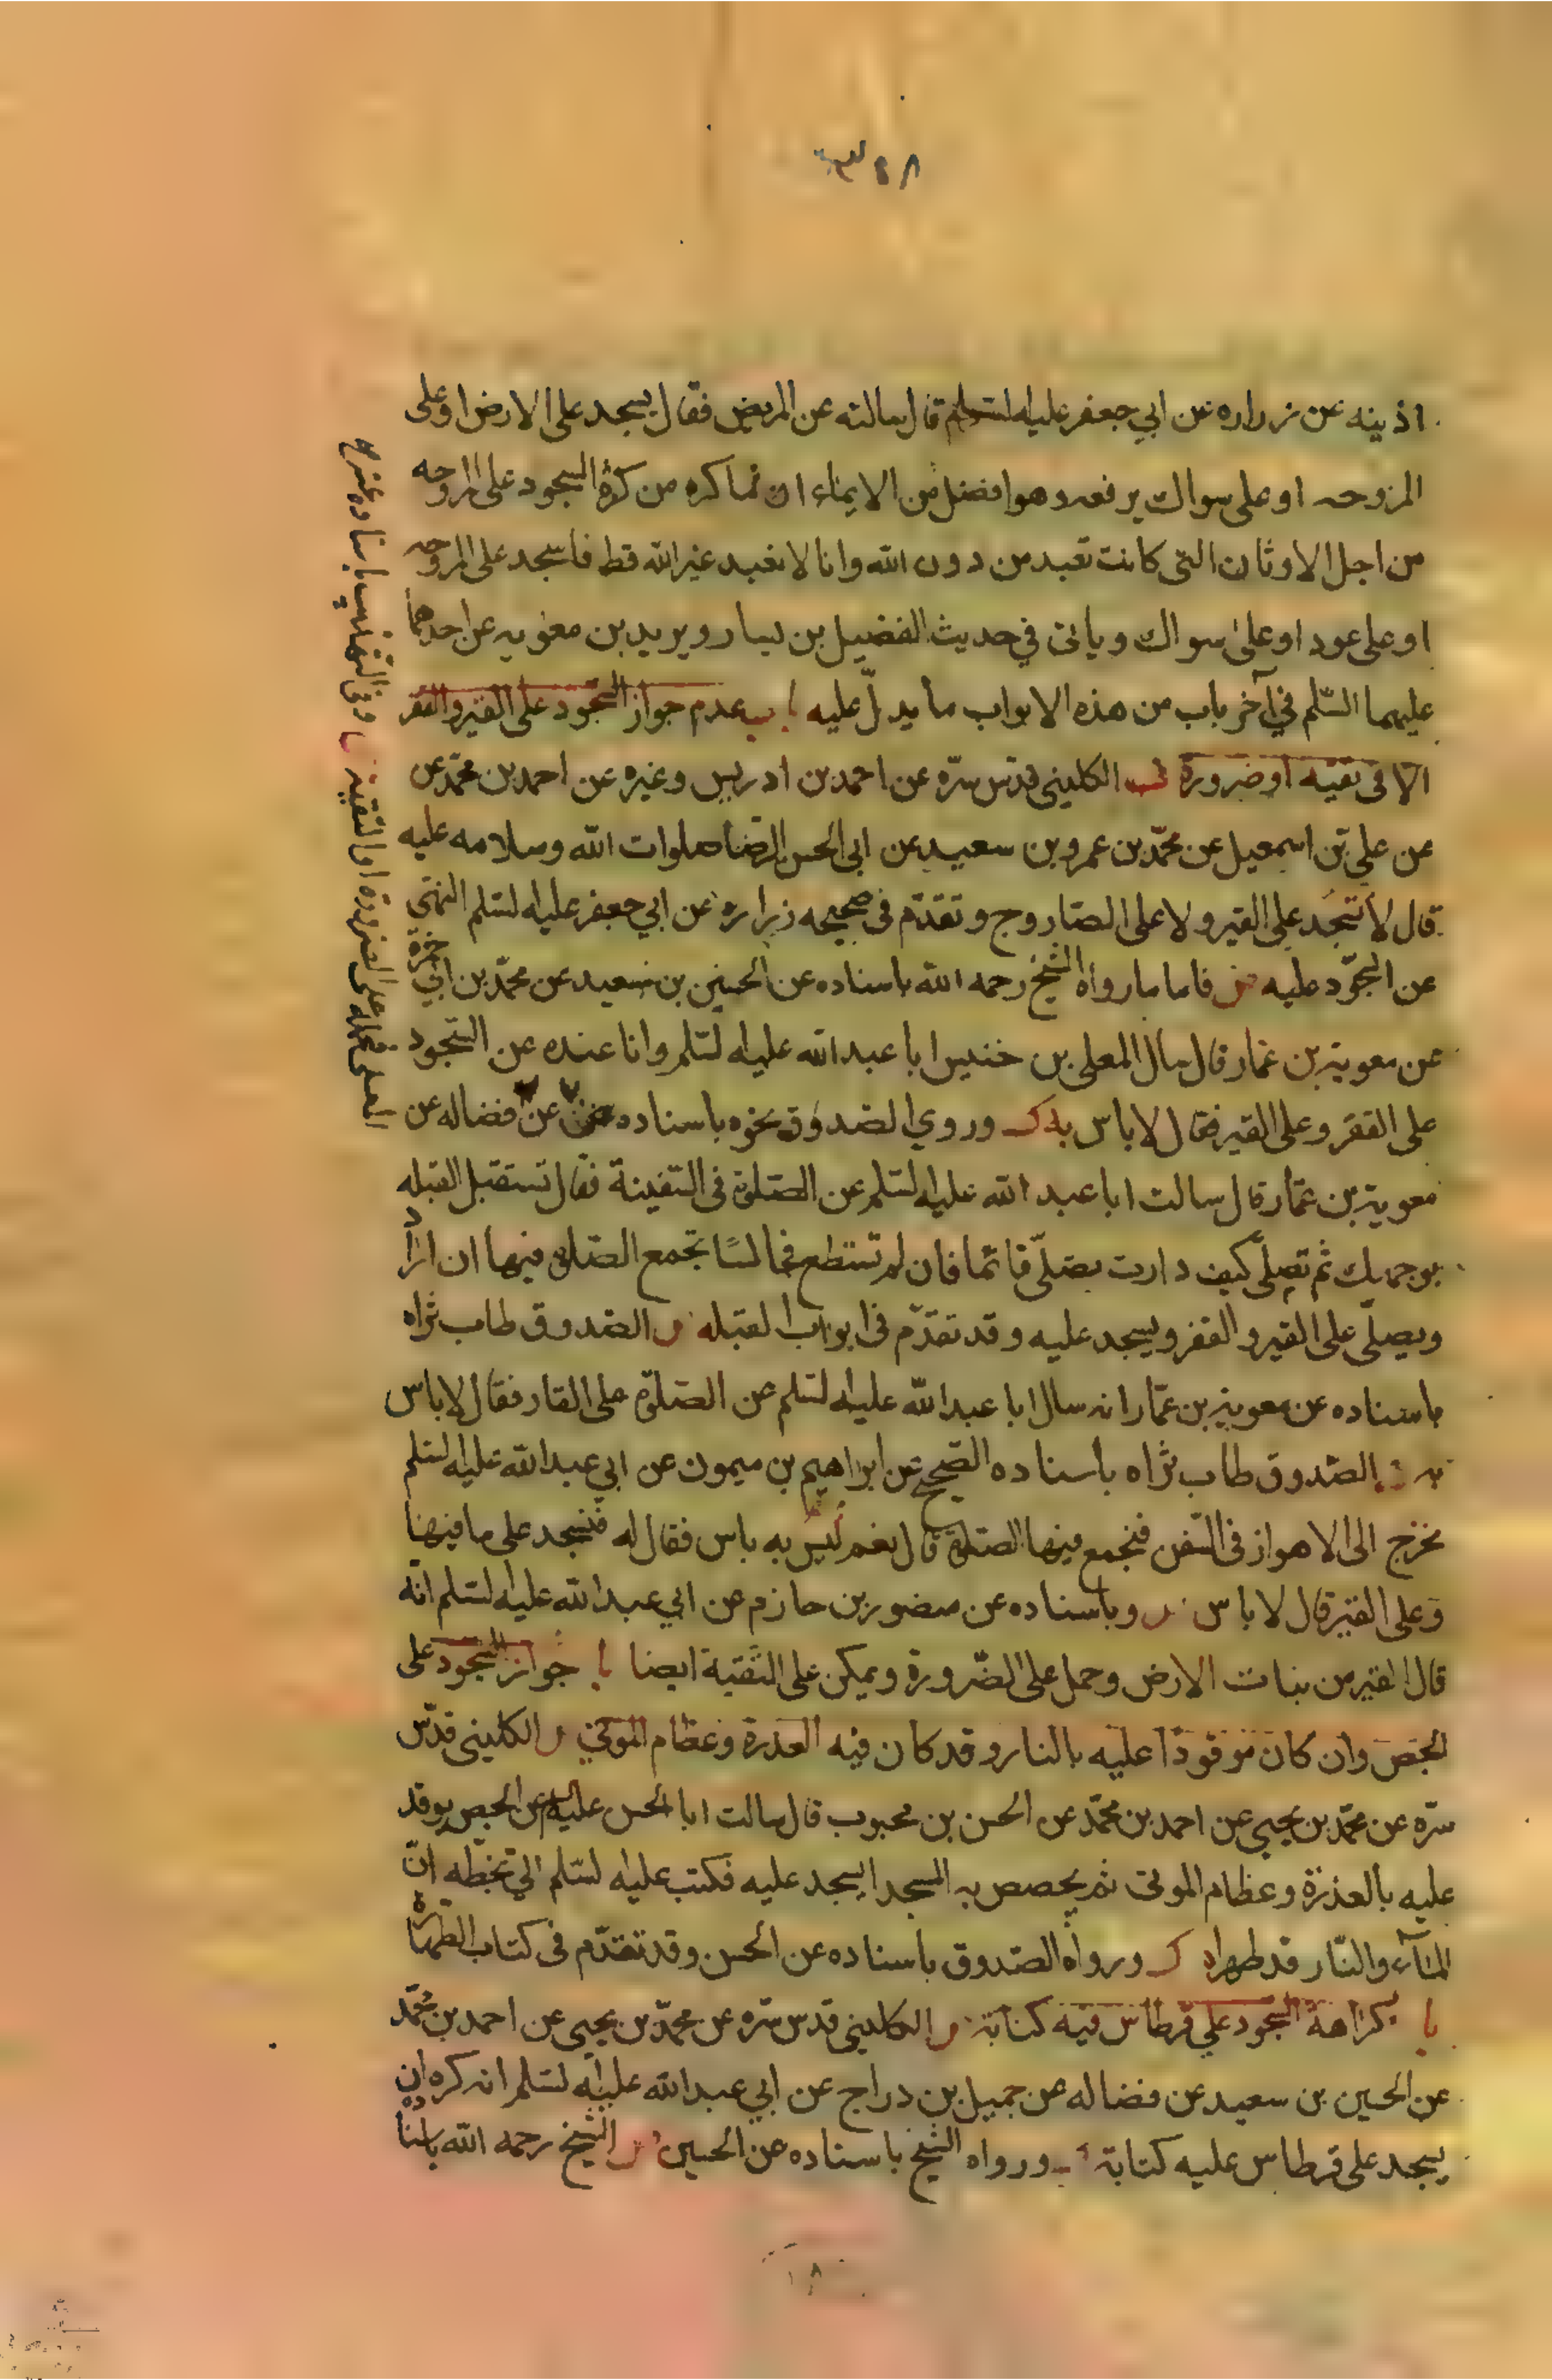 اذينه عن زراره عن ابي جعفر عليه السلم قال سالته عن المريض فقال يسجد على الارض او على
المروحه او على سواك يرفعه وهو افضل من الايماء انما كره من كره السجود على المروحه
من اجل الاوثان التى كانت تعبد من دون الله وانا لا نعبد غير الله قط فاسجد على المروحه
او على عود او على سواك وياتى في حديث الفضيل بن يسار وبريد بن معويه عن احدهما
عليهما السّلم في آخر باب من هذه الابواب ما يدلّ عليه باب عدم جواز السّجود على القير والقفر
الا فى تقيه او ضرورة الكلينى قدّس سرّه عن احمد بن ادريس وغيره عن احمد بن محمّد عن
عن علي بن اسمعيل عن محمّد بن عمرو بن سعيد عن ابى الحسن الرّضا صلوات الله وسلامه عليه
قال لا تسجد على القير ولا على الصّاروج وتقدّم فى صحيحه زراره عن ابي جعفر عليه السلم النهى
عن السّجود عليه فاما ما رواه الشيخ رحمه الله باسناده عن الحسين بن سعيد عن محمّد بن ابي
عن معوية بن عمار قال سال المعلى بن خنيس ابا عبد الله عليه السّلم وانا عنده عن السّجود
على القفر وعلى القير فقال لا باس به وروي الصّدوق نحوه باسناده عن فضاله عن
معوية بن عمّار قال سالت ابا عبد الله عليه السلم عن الصّلوة فى السّفينة فقال تستقبل القبله
بوجهك ثم تصلّى كيف دارت تصلّى قائما فان لم تستطع فجالسًا تجمع الصّلوة فيها ان اراد
ويصلّى على القير والقفر ويسجد عليه وقد تقدّم فى ابواب القبله الصّدوق طاب ثراه
باسناده عن معوية بن عمّار انه سال ابا عبد الله عليه السلم عن الصّلوة على القار فقال لا باس
به الصّدوق طاب ثراه باسناده الصّحيح عن ابراهيم بن ميمون عن ابي عبد الله عليه السلم
نخرج الى الاهواز فى السّفن فنجمع فيها الصّلوة قال نعم ليس به باس فقال له فنسجد على ما فيها
وعلى القير قال لا باس وباسناده عن منصور بن حازم عن ابي عبد الله عليه السّلم انّه
قال القير من نبات الارض وحمل على الضّرورة ويمكن على التّقية ايضا با جواز السّجود على
الجصّ وان كان موقودًا عليه بالنار وقد كان فيه العذرة وعظام الموتى الكلينى قدّس
سرّه عن محمّد بن يحيى عن احمد بن محمّد عن الحسن بن محبوب قال سالت ابا الحسن عليه السلم عن الجص يوقد
عليه بالعذرة وعظام الموتى ثم يجصص به المسجد ايسجد عليه فكتب عليه السّلم الى بخطّه انّ
المآء والنّار قد طهراه ورواه الصّدوق باسناده عن الحسن وقد تقدّم فى كتاب الطّهارة
با كراهة السّجود على قرطاس فيه كتابة الكلينى قدس سّره عن محمّد بن يحيى عن احمد بن محمّد
عن الحسين بن سعيد عن فضاله عن جميل بن دراج عن ابي عبد الله عليه السّلم انه كره ان
يسجد على قرطاس عليه كتابة ورواه الشيخ باسناده عن الحسين الشيخ رحمه الله باسناده